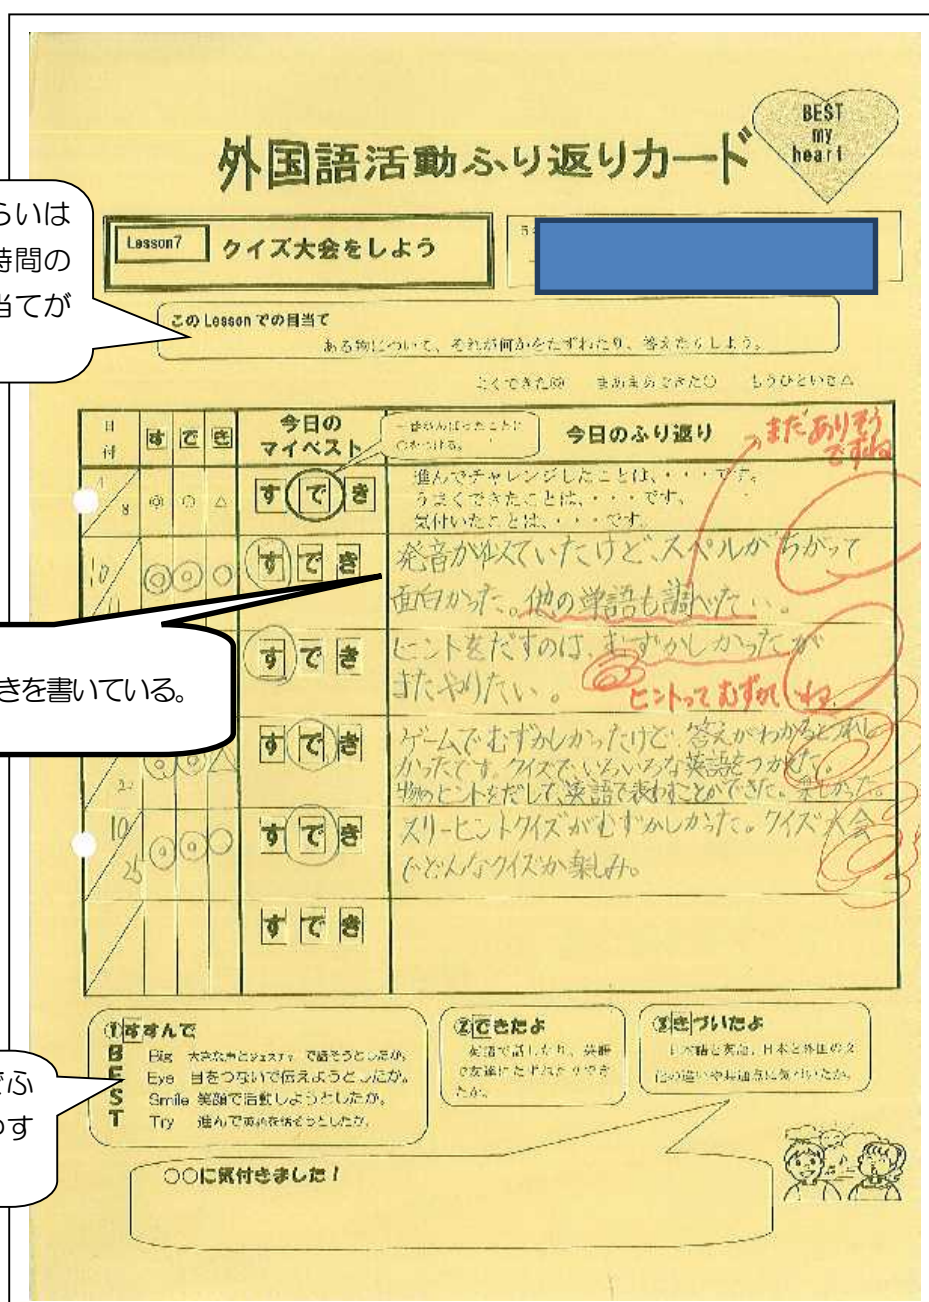 BEST
my
heart
外国語活動ふり返りカード
Lesson7 クイズ大会をしよう
5
らいは
時間の
当てが
このLessonでの目当て
ある物について、それが何かをたずねたり、答えたりしよう。
よくできた◎ まあまあできた○ もうひといき△
日付 す で き 今日のマイベスト 今日のふり返り
一番がんばったことに
○をつける。
まだありそう
ですね
8 ◎ ○ △ す で き
進んでチャレンジしたことは、・・・です。
うまくできたことは、・・・です。
気付いたことは、・・・です。
10 ◎ ◎ ○ す で き
発音がにていたけど、スペルがちがって
面白かった。他の単語も調べたい。
きを書いている。
す で き
ヒントをだすのは、むずかしかったが
またやりたい。
ヒントってむずかしいね
◎ ◎ △ す で き
ゲームでむずかしかったけど、答えがわかるとうれし
かったです。クイズで、いろいろな英語をつかえた。
物のヒントをだして、英語で表わすことができた。楽しかった。
10/25 ◎ ◎ ○ す で き
スリーヒントクイズがむずかしかった。クイズ大会
でどんなクイズか楽しみ。
す で き
でふ
わす
①すすんで
B Big 大きな声とジェスチャーで話そうとしたか。
E Eye 目をつないで伝えようとしたか。
S Smile 笑顔で活動しようとしたか。
T Try 進んで英語を話そうとしたか。
②できたよ
英語で話したり、英語
で友達にたずねたりでき
たか。
③きづいたよ
日本語と英語、日本と外国の文
化の違いや共通点に気づいたか。
○○に気付きました！